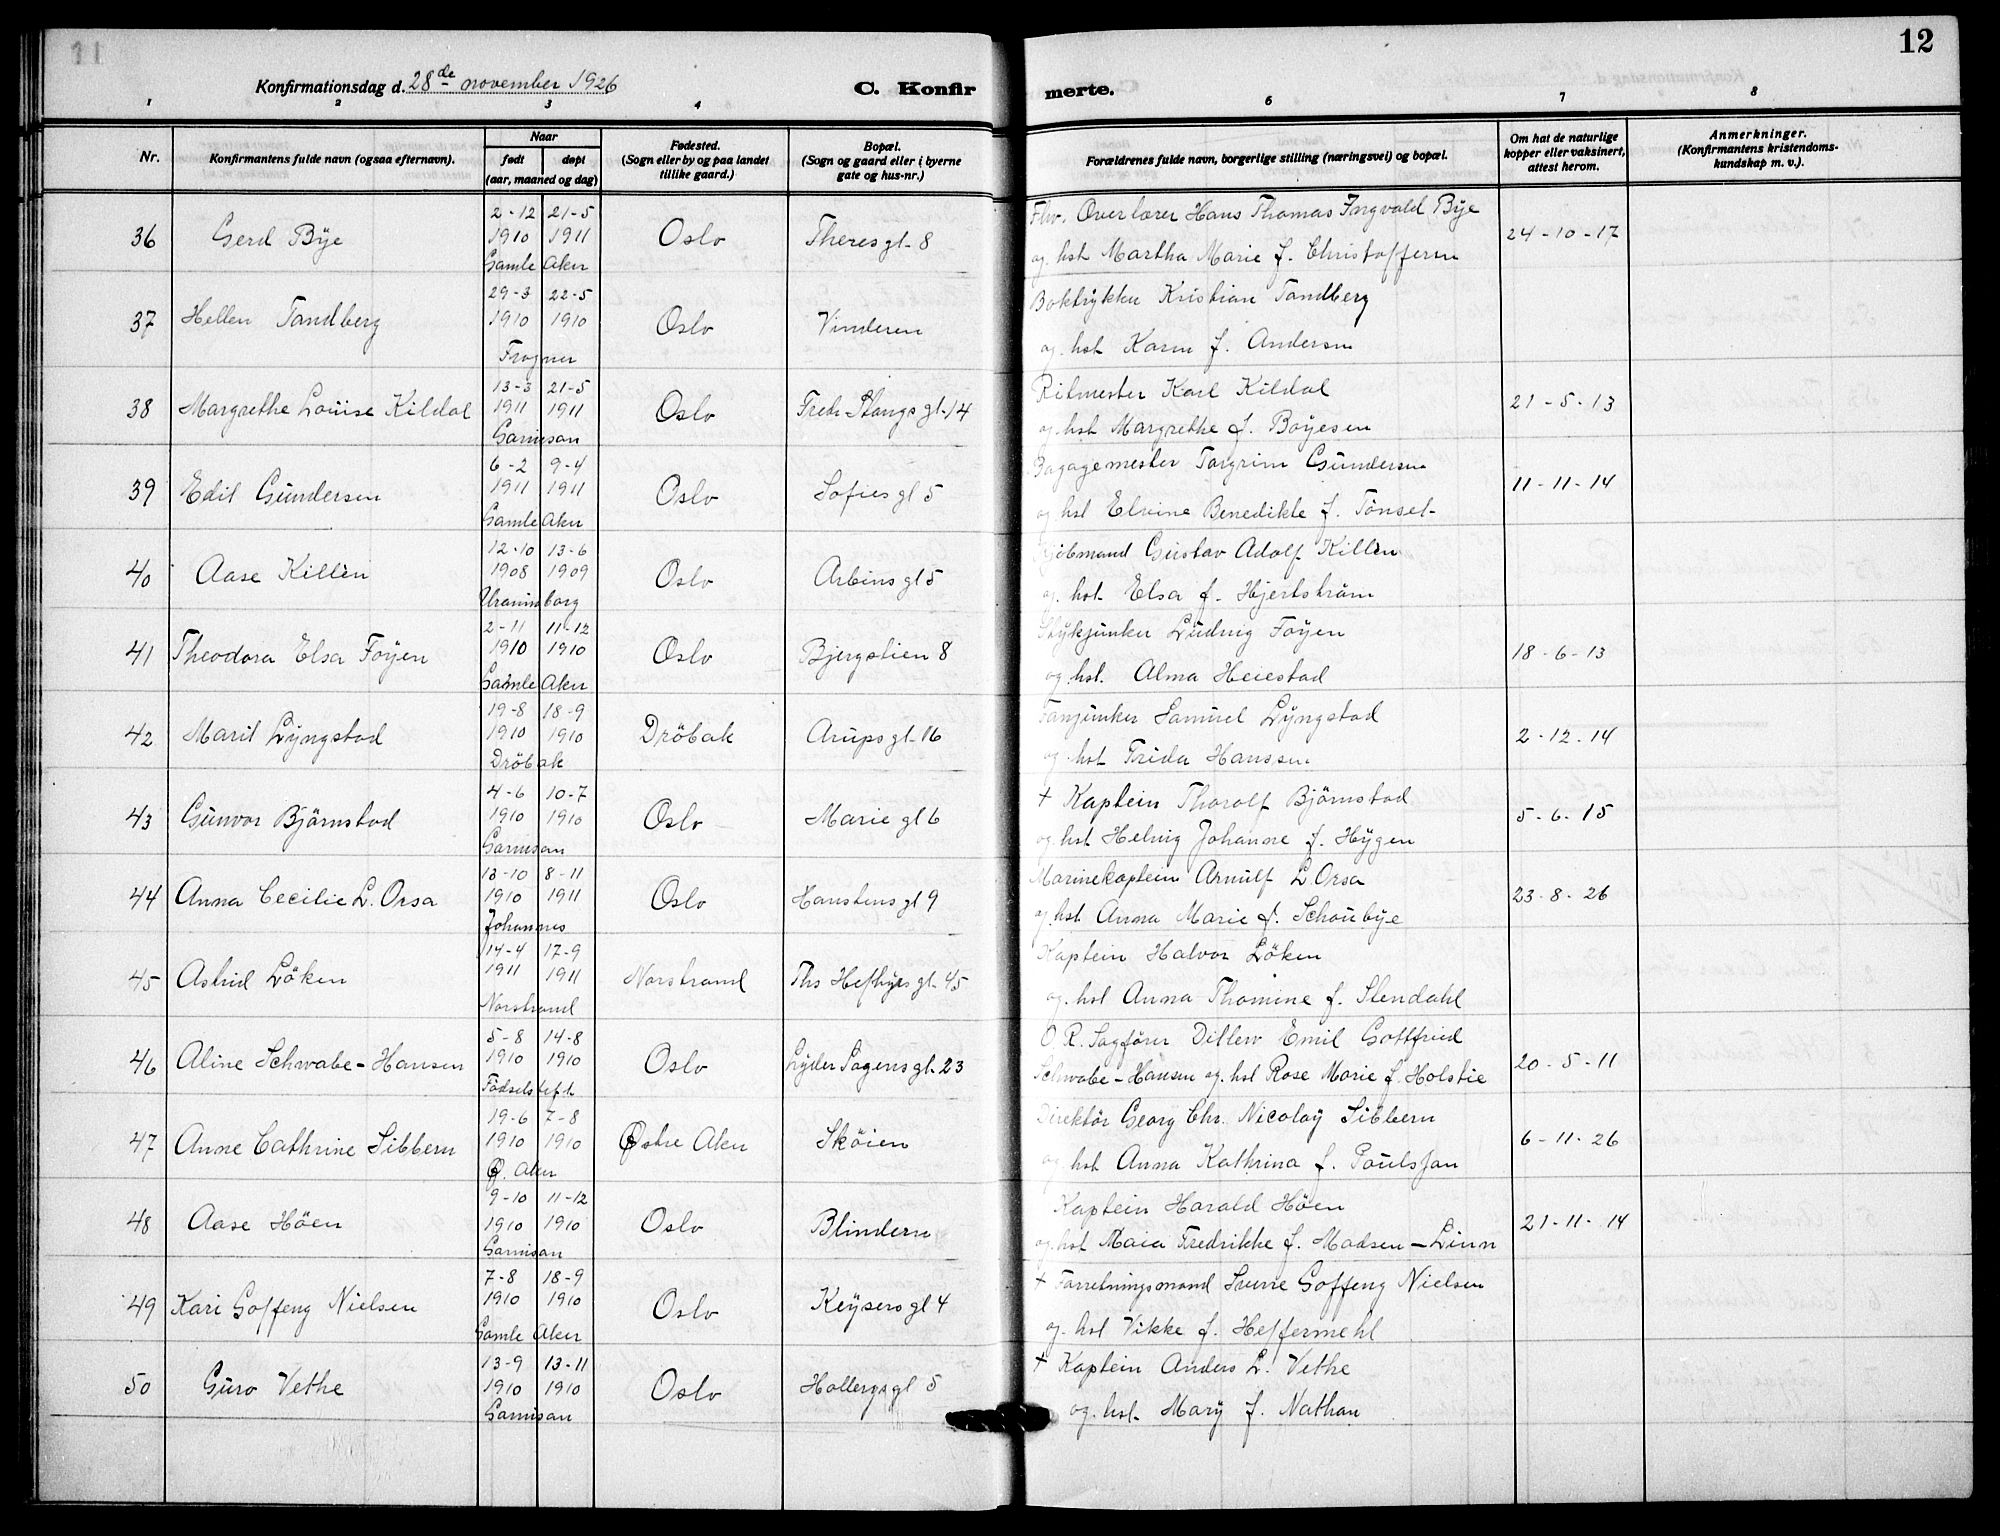 11
12
Konfirmationsdag d. 28de november 1926
C. Konfirmerte.
1 2 3 4 6 7 8
Nr.
Konfirmantens fulde navn (ogsaa efternavn).
Naar
født
døpt
(aar, maaned og dag)
Fødested.
(Sogn eller by og paa landet
tillike gaard.)
Bopæl.
(Sogn og gaard eller i byerne
gate og hus-nr.)
Forældrenes fulde navn, borgerlige stilling (næringsvei) og bopæl.
Om hat de naturlige
kopper eller vaksinert,
attest herom.
Anmerkninger.
(Konfirmantens kristendoms-
kundskap m. v.).
36 Gerd Bÿe 2-12 1910 21-5 1911 Gamle Aker Oslo Theresgt. 8
Fhv. Overlærer Hans Thomas Ingvald Bÿe
og hst Martha Marie f. Christoffersen
24-10-17
37 Hellen Tandberg 29-3 1910 22-5 1910 Frogner Oslo Vinderen
Boktrykker Kristian Tandberg
og hst Karin f. Andersen
38 Margrethe Louise Kildal 13-3 1911 21-5 1911 Garnison Oslo Fredr. Stangs gt. 14
Ritmester Karl Kildal
og hst Margrethe f. Boÿesen
21-5-13
39 Edit Gundersen 6-2 1911 9-4 1911 Gamle Aker Oslo Sofies gt 5
Bagagemester Torgrim Gundersen
og hst Elvine Benedikte f. Tönset-
11-11-14
40 Aase Killèn 12-10 1908 13-6 1909 Uranienborg Oslo Arbins gt 5
Kjöbmand Gustav Adolf Killèn
og hst Elsa f. Hjertström
41 Theodora Elsa Foÿen 2-11 1910 11-12 1910 Gamle Aker Oslo Bjergstien 8
Stÿkjunker Ludvig Foÿen
og hst. Alma Heiestad
18-6-13
42 Marit Lÿngstad 19-8 1910 18-9 1910 Dröbak Dröbak Arups gt. 16
Fanjunker Samuel Lÿngstad
og hst Frida Hanssen
2-12-14
43 Gunvor Björnstad 4-6 1910 10-7 1910 Garnison Oslo Marie gt 6
† Kaptein Thorolf Björnstad
og hst Helvig Johanne f. Hÿgen
5-6-15
44 Anna Cecilie L. Orsa 13-10 1910 8-11 1911 Johannes Oslo Hanstens gt 9
Marinekaptein Arnulf L. Orsa
og hst Anna Marie f. Schoubÿe
23-8-26
45 Astrid Löken 14-4 1911 17-9 1911 Norstrand Norstrand Ths Heftÿes gt. 45
Kaptein Halvor Löken
og hst Anna Thomine f. Stendahl
46 Aline Schwabe-Hansen 5-8 1910 14-8 1910 Födselstift. Oslo Lÿder Sagens gt. 23
O.R. Sagförer Ditlew Emil Gottfried
Schwabe-Hansen og hst Rose Marie f. Holstie
20-5-11
47 Anne Cathrine Sibbern 19-6 1910 7-8 1910 Ø. Aker Østre Aker Sköien
Direktör Georg Chr. Nicolaÿ Sibbern
og hst Anna Kathrina f. Poulsson
6-11-26
48 Aase Höen 9-10 1910 11-12 1910 Garnison Oslo Blindern
Kaptein Harald Höen
og hst Maia Fredrikke f. Madsen-Linn
21-11-14
49 Kari Goffeng Nielsen 7-8 1910 18-9 1910 Gamle Aker Oslo Keÿsers gt 4
† Forretningsmand Sverre Goffeng Nielsen
og hst Vikke f. Heffermehl
50 Guro Vethe 13-9 1910 13-11 1910 Garnison Oslo Holbergs gt 5
† Kaptein Anders L. Vethe
og hst. Marÿ f. Nathan